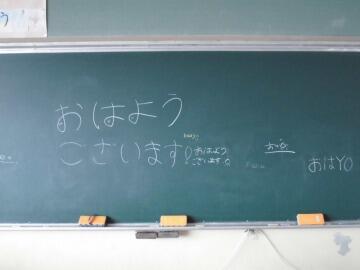 おはよう
ございます!
おはよう
ございます。
おはYO